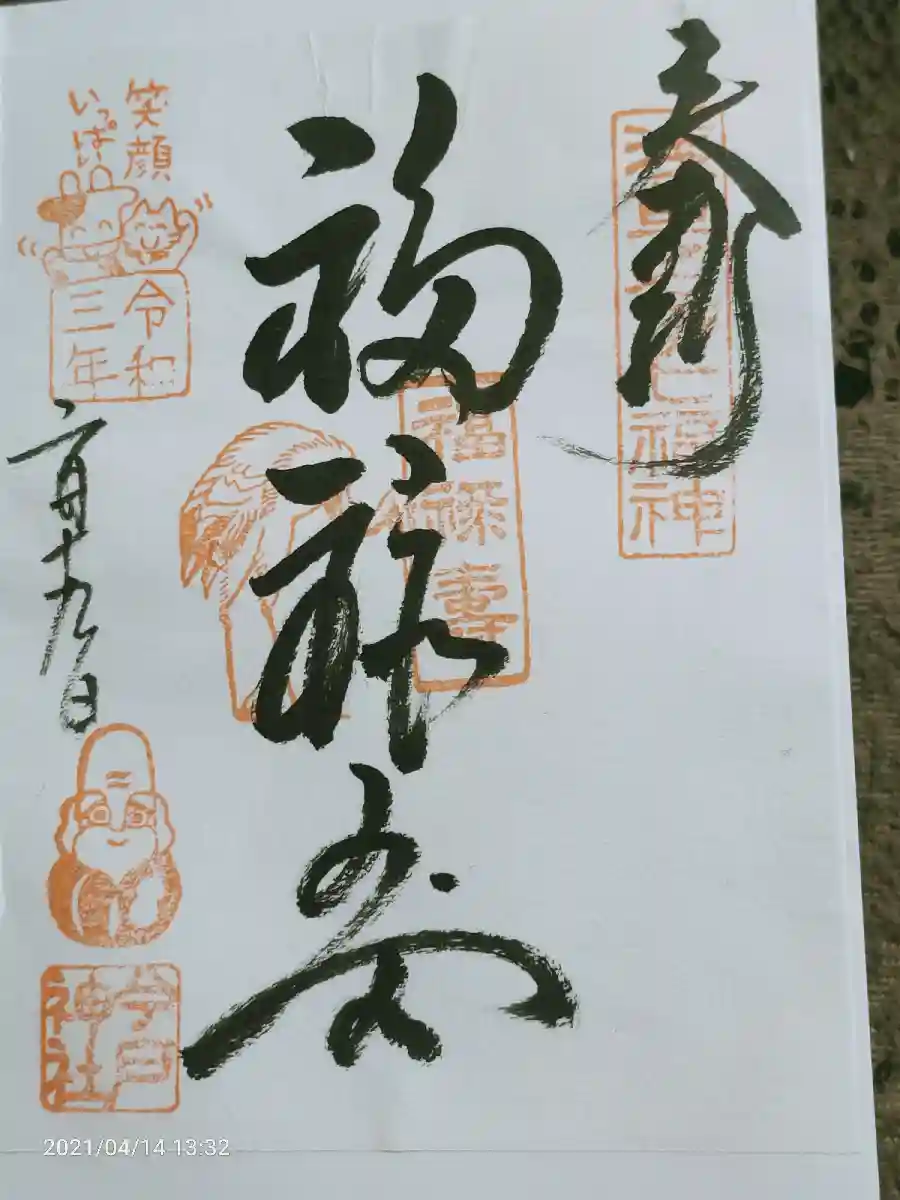 奉拝
七福神
福禄寿
福禄壽
笑顔
いっぱい
令和
三年
二月十九日
神社
2021/04/14 13:32